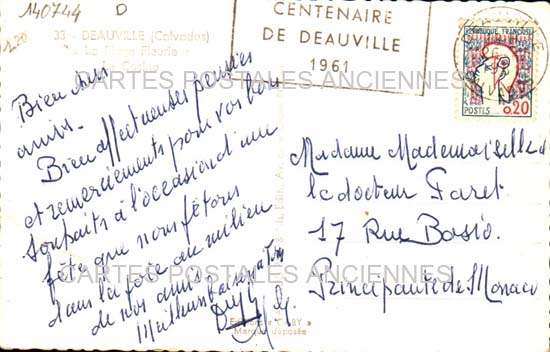 140744 D
1.20
33 - DEAUVILLE (Calvados)
La Plage Fleurie
Le Casino
CENTENAIRE
DE DEAUVILLE
1961
REPUBLIQUE FRANÇAISE
POSTES 0,20
CARTES POSTALES ANCIENNES
Bien
amis.
Bien affectueuses pensées
et remerciements pour vos bons
souhaits à l'occasion d'une
fête que nous fêtons
dans la joie au milieu
de nos amis
Meilleurs baisers
Madame Mademoiselle et
le docteur Faret
17 Rue Bosio.
Principauté de Monaco
CARTES POSTALES ANCIENNES
Marque déposée